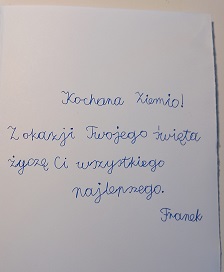 Kochana Ziemio!
Z okazji Twojego święta
życzę Ci wszystkiego
najlepszego.
Franek